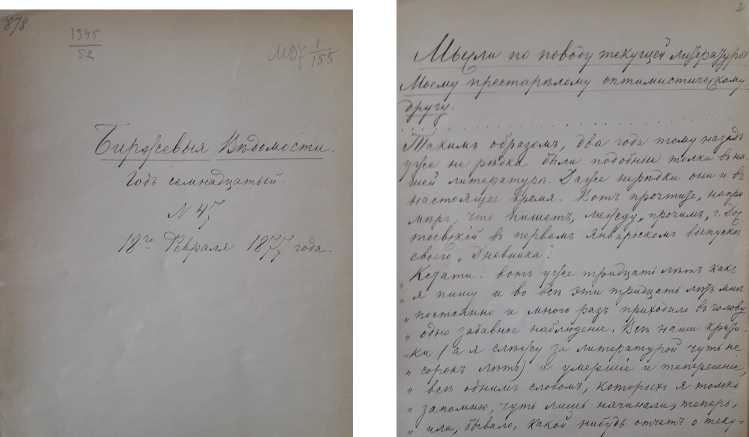 878
1945
52
1
155
Биржевыя Вѣдомости.
Годъ семнадцатый.
N 47
18го Февраля 1877 года.
2
Мысли по поводу текущей литературы
Моему престарѣлому оптимистическому
другу.
Такимъ образомъ, два года тому назадъ
уже не рѣдки были подобные толки въ на
шей литературѣ. Даже нерѣдки они и въ
настоящее время. Вотъ прочтите, напри
мѣръ, что пишетъ, между, прочимъ, г. Дос
тоевскій въ первомъ Январьскомъ выпускѣ
своего „Дневника":
Кстати: вотъ уже тридцать лѣтъ какъ
„ я пишу и во всѣ эти тридцать лѣтъ мнѣ
„ постоянно и много разъ приходило въ голову
„ одно забавное наблюденіе. Всѣ наши крити
„ ки (а я слѣжу за литературой чуть не
„ сорокъ лѣтъ) и умершіе и теперешніе,
„ всѣ однимъ словомъ, которыхъ я только
„ запомню, чуть лишь начинали, теперь,
„ или, бывало, какой нибудь отчетъ о теку-